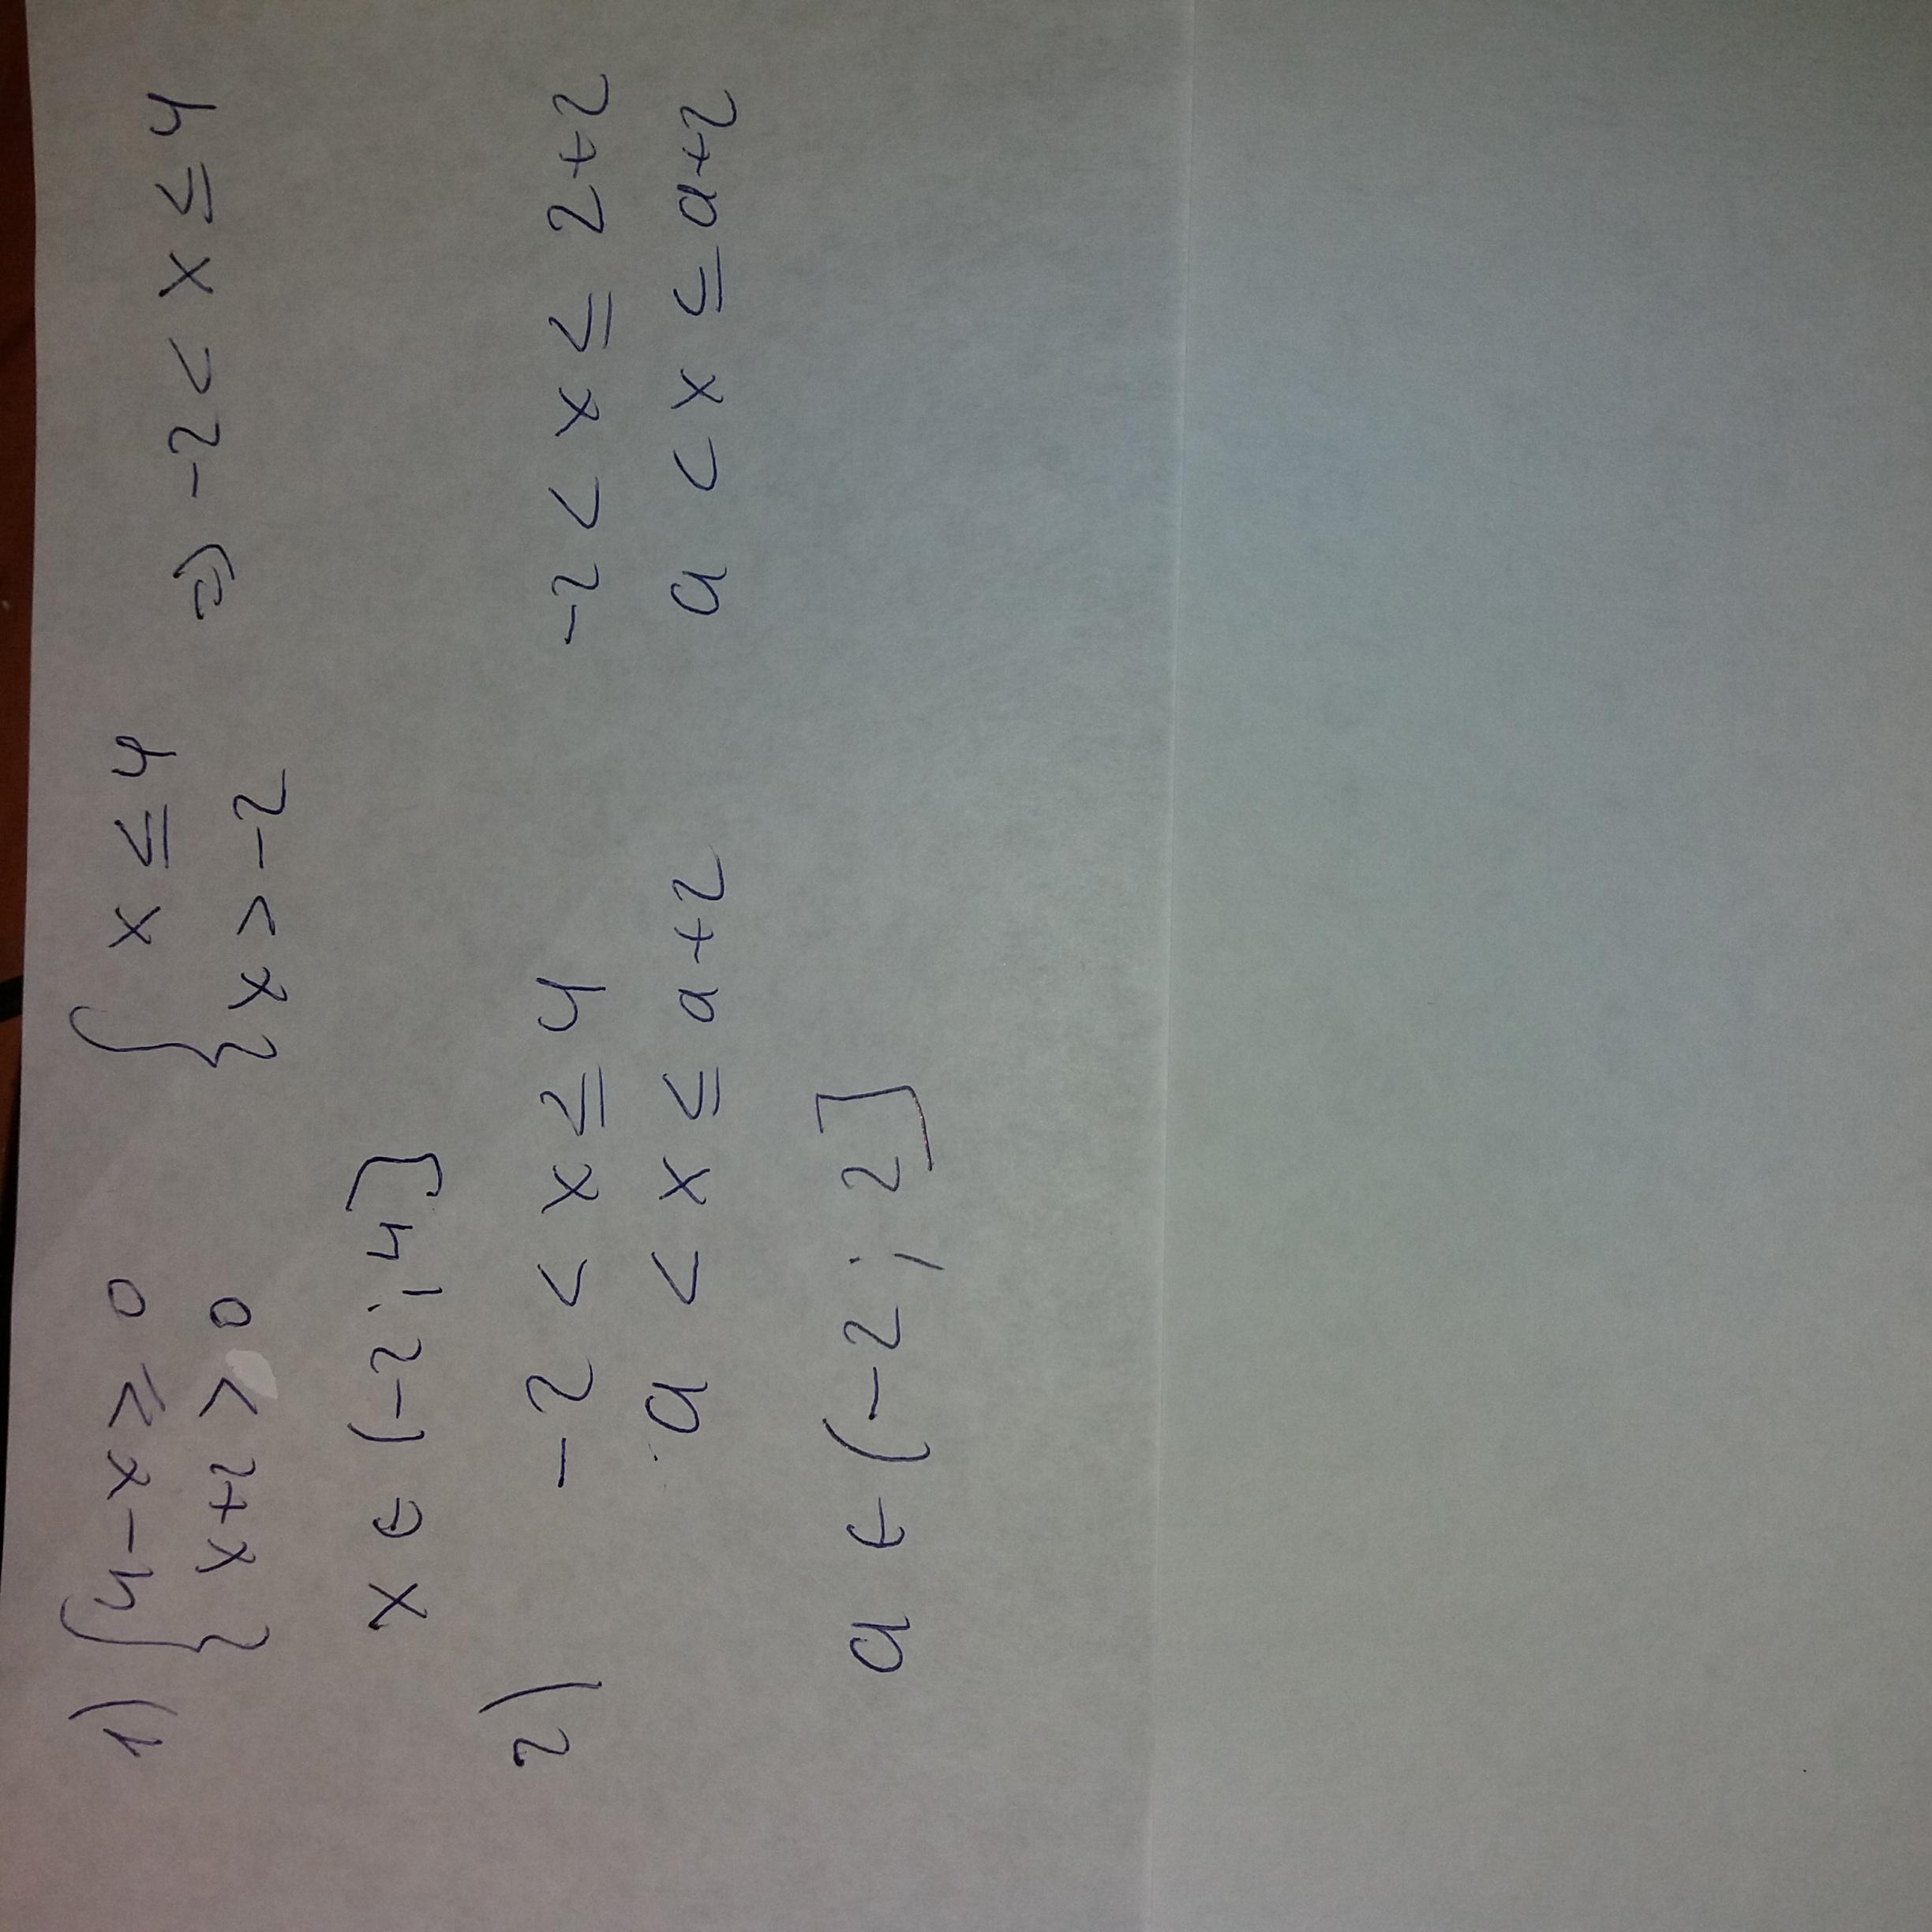 1) { 4-x ≥ 0 { x ≤ 4
x+2 > 0 x > -2 => -2 < x ≤ 4
x ∈ (-2; 4]
2) -2 < x ≤ 4 -2 < x ≤ 2+2
a < x ≤ a+2 a < x ≤ a+2
a ∈ (-2; 2]